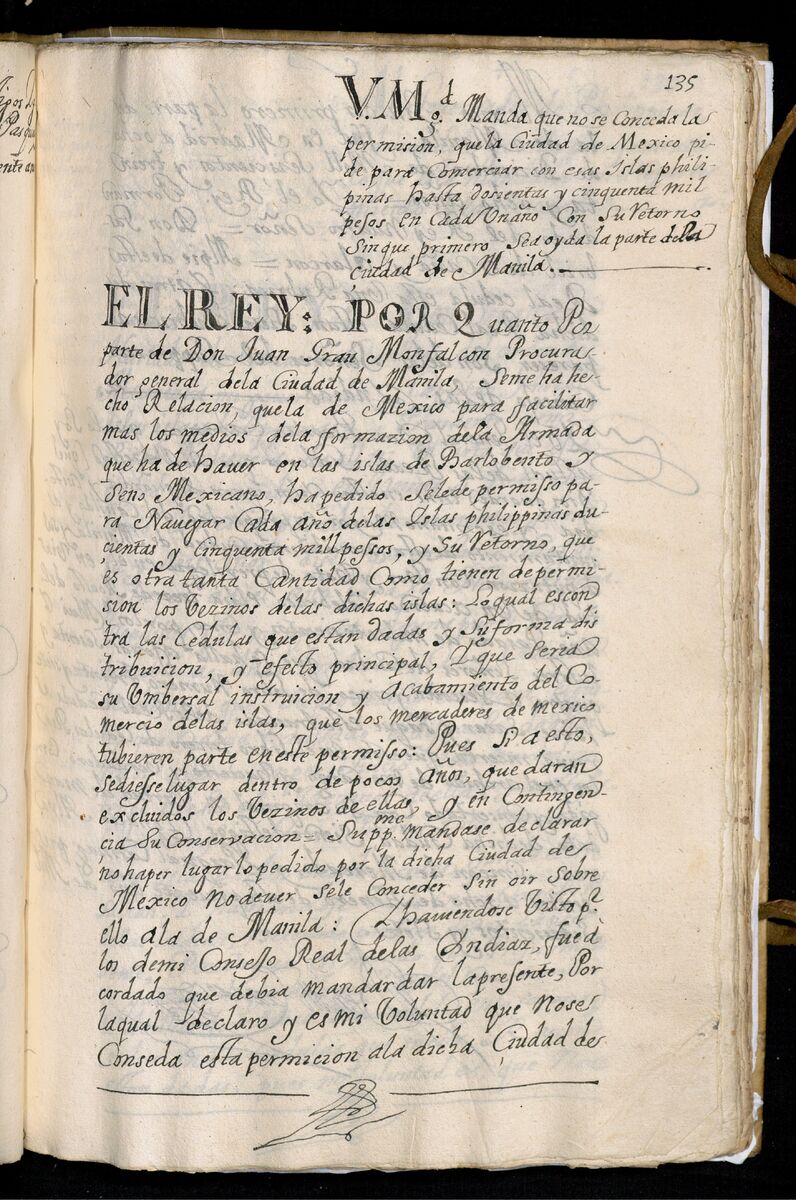 135
V.Mg.d Manda que no se Conceda la
permision, que la Ciudad de Mexico pi-
de para Comerciar con esas Islas phili-
pinas hasta dosientas y cinquenta mil
pesos en Cada Un año Con Su Retorno
Sin que primero Sea oyda la parte de la
ciudad de Manila.
EL REY: POR Quanto Por
parte de Don Juan Grau Monfalcon Procura-
dor general dela Ciudad de Manila, Seme ha he-
cho Relacion, quela de Mexico para facilitar
mas los medios dela formazion dela Armada
que ha de haver en las islas de Barlobento y
Seno Mexicano, ha pedido Selede permisso pa-
ra Navegar Cada año delas Islas philippinas du-
cientas y Cinquenta mill pessos, y Su Retorno, que
es otra tanta Cantidad Como tienen de permi-
sion los Vezinos delas dichas islas: Lo qual es con
tra las Cedulas que estan dadas y Su forma dis
tribuicion, y efecto principal, Y que Seria
su Vmibersal instruicion y Acabamiento del Co-
mercio delas islas, que los mercaderes de mexico
tubieren parte en este permisso: Pues Si a esto,
se diesse lugar dentro de pocos Años, que daran
excluidos los Vezinos de ellas, y en Contingen-
cia Su Conservacion = Supp.mo mandase declarar
no haper lugar lo pedido por la dicha Ciudad de
Mexico no dever sele Conceder Sin oir sobre
ello ala de Manila: Y haviendose Visto p.r
los demi Consejo Real delas Indiaz, fue a
cordado que debia mandar dar la presente, Por
la qual declaro y es mi Voluntad que no se
Conseda esta permicion ala dicha Ciudad de